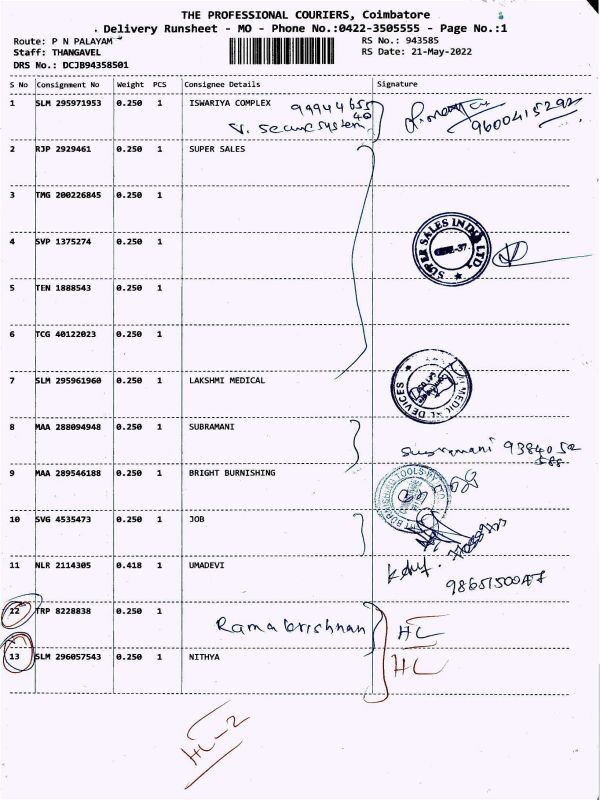 THE PROFESSIONAL COURIERS, Coimbatore
Delivery Runsheet - MO - Phone No.:0422-3505555 - Page No.:1
Route: P N PALAYAM
RS No.: 943585
Staff: THANGAVEL
RS Date: 21-May-2022
DRS No.: DCJB94358501
S No Consignment No Weight PCS Consignee Details Signature
1 SLM 295971953 0.250 1 ISWARIYA COMPLEX
9600415292
2 RJP 2929461 0.250 1 SUPER SALES
3 TMG 200226845 0.250 1
4 SVP 1375274 0.250 1
SUPER SALES INDIA LTD.
5 TEN 1888543 0.250 1
6 TCG 40122023 0.250 1
7 SLM 295961960 0.250 1 LAKSHMI MEDICAL
MEDICAL DEVICES
8 MAA 288094948 0.250 1 SUBRAMANI
9384052
588
9 MAA 289546188 0.250 1 BRIGHT BURNISHING
10 SVG 4535473 0.250 1 JOB
11 NLR 2114305 0.418 1 UMADEVI
12 TRP 8228838 0.250 1 Ramakrishnan HL
13 SLM 296057543 0.250 1 NITHYA HL
HL-2